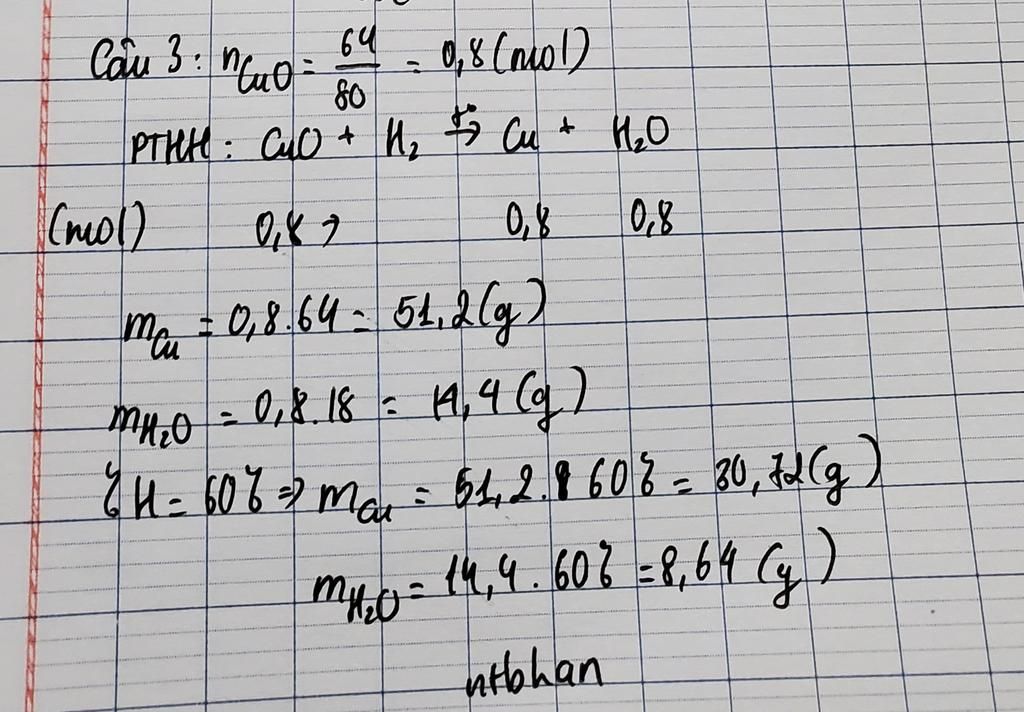 Câu 3: nCuO = 64/80 = 0,8 (mol)
PTHH: CuO + H2 t°→ Cu + H2O
(mol) 0,8 → 0,8 0,8
mCu = 0,8.64 = 51,2 (g)
mH2O = 0,8.18 = 14,4 (g)
%H = 60% ⇒ mCu = 51,2. 60% = 30,72 (g)
mH2O = 14,4. 60% = 8,64 (g)
ntbhan